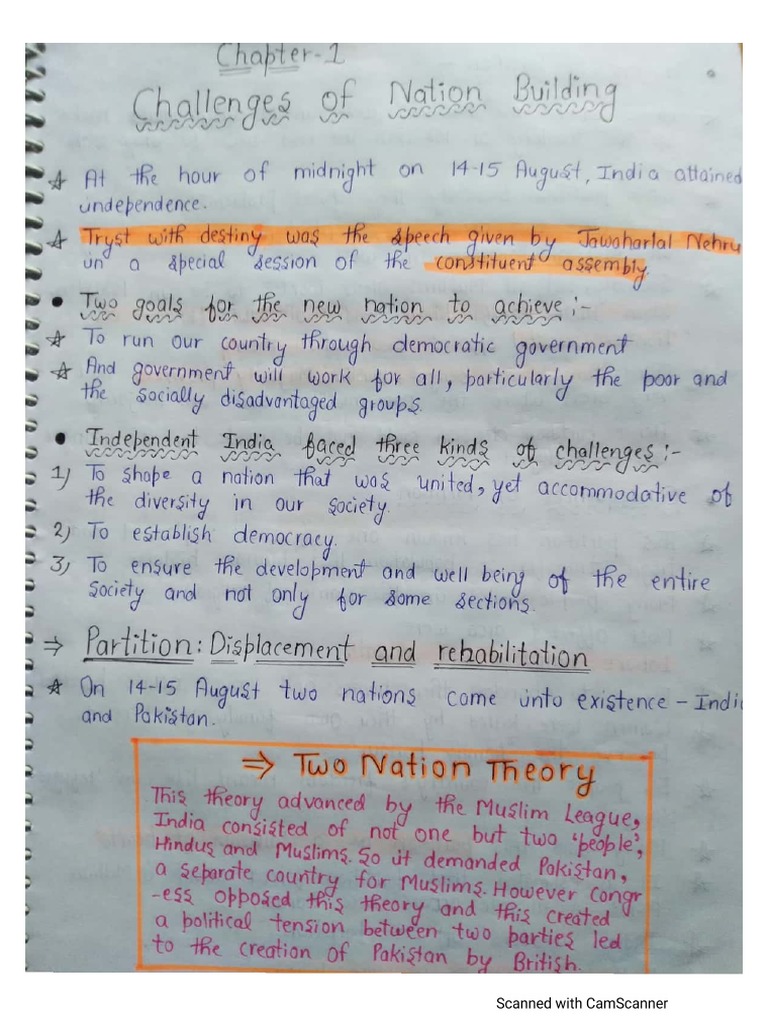 Chapter-1
Challenges of Nation Building
☆ At the hour of midnight on 14-15 August, India attained
independence.
☆ Tryst with destiny was the speech given by Jawaharlal Nehru
in a special session of the constituent assembly.
• Two goals for the new nation to achieve :-
☆ To run our country through democratic government
☆ And government will work for all, particularly the poor and
the socially disadvantaged groups.
• Independent India faced three kinds of challenges :-
1) To shape a nation that was united, yet accommodative of
the diversity in our society.
2) To establish democracy.
3) To ensure the development and well being of the entire
society and not only for some sections.
⇒ Partition: Displacement and rehabilitation
☆ On 14-15 August two nations come into existence - India
and Pakistan.
⇒ Two Nation Theory
This theory advanced by the Muslim League,
India consisted of not one but two 'people',
Hindus and Muslims. So it demanded Pakistan,
a separate country for Muslims. However congr
-ess opposed this theory and this created
a political tension between two parties led
to the creation of Pakistan by British.
Scanned with CamScanner